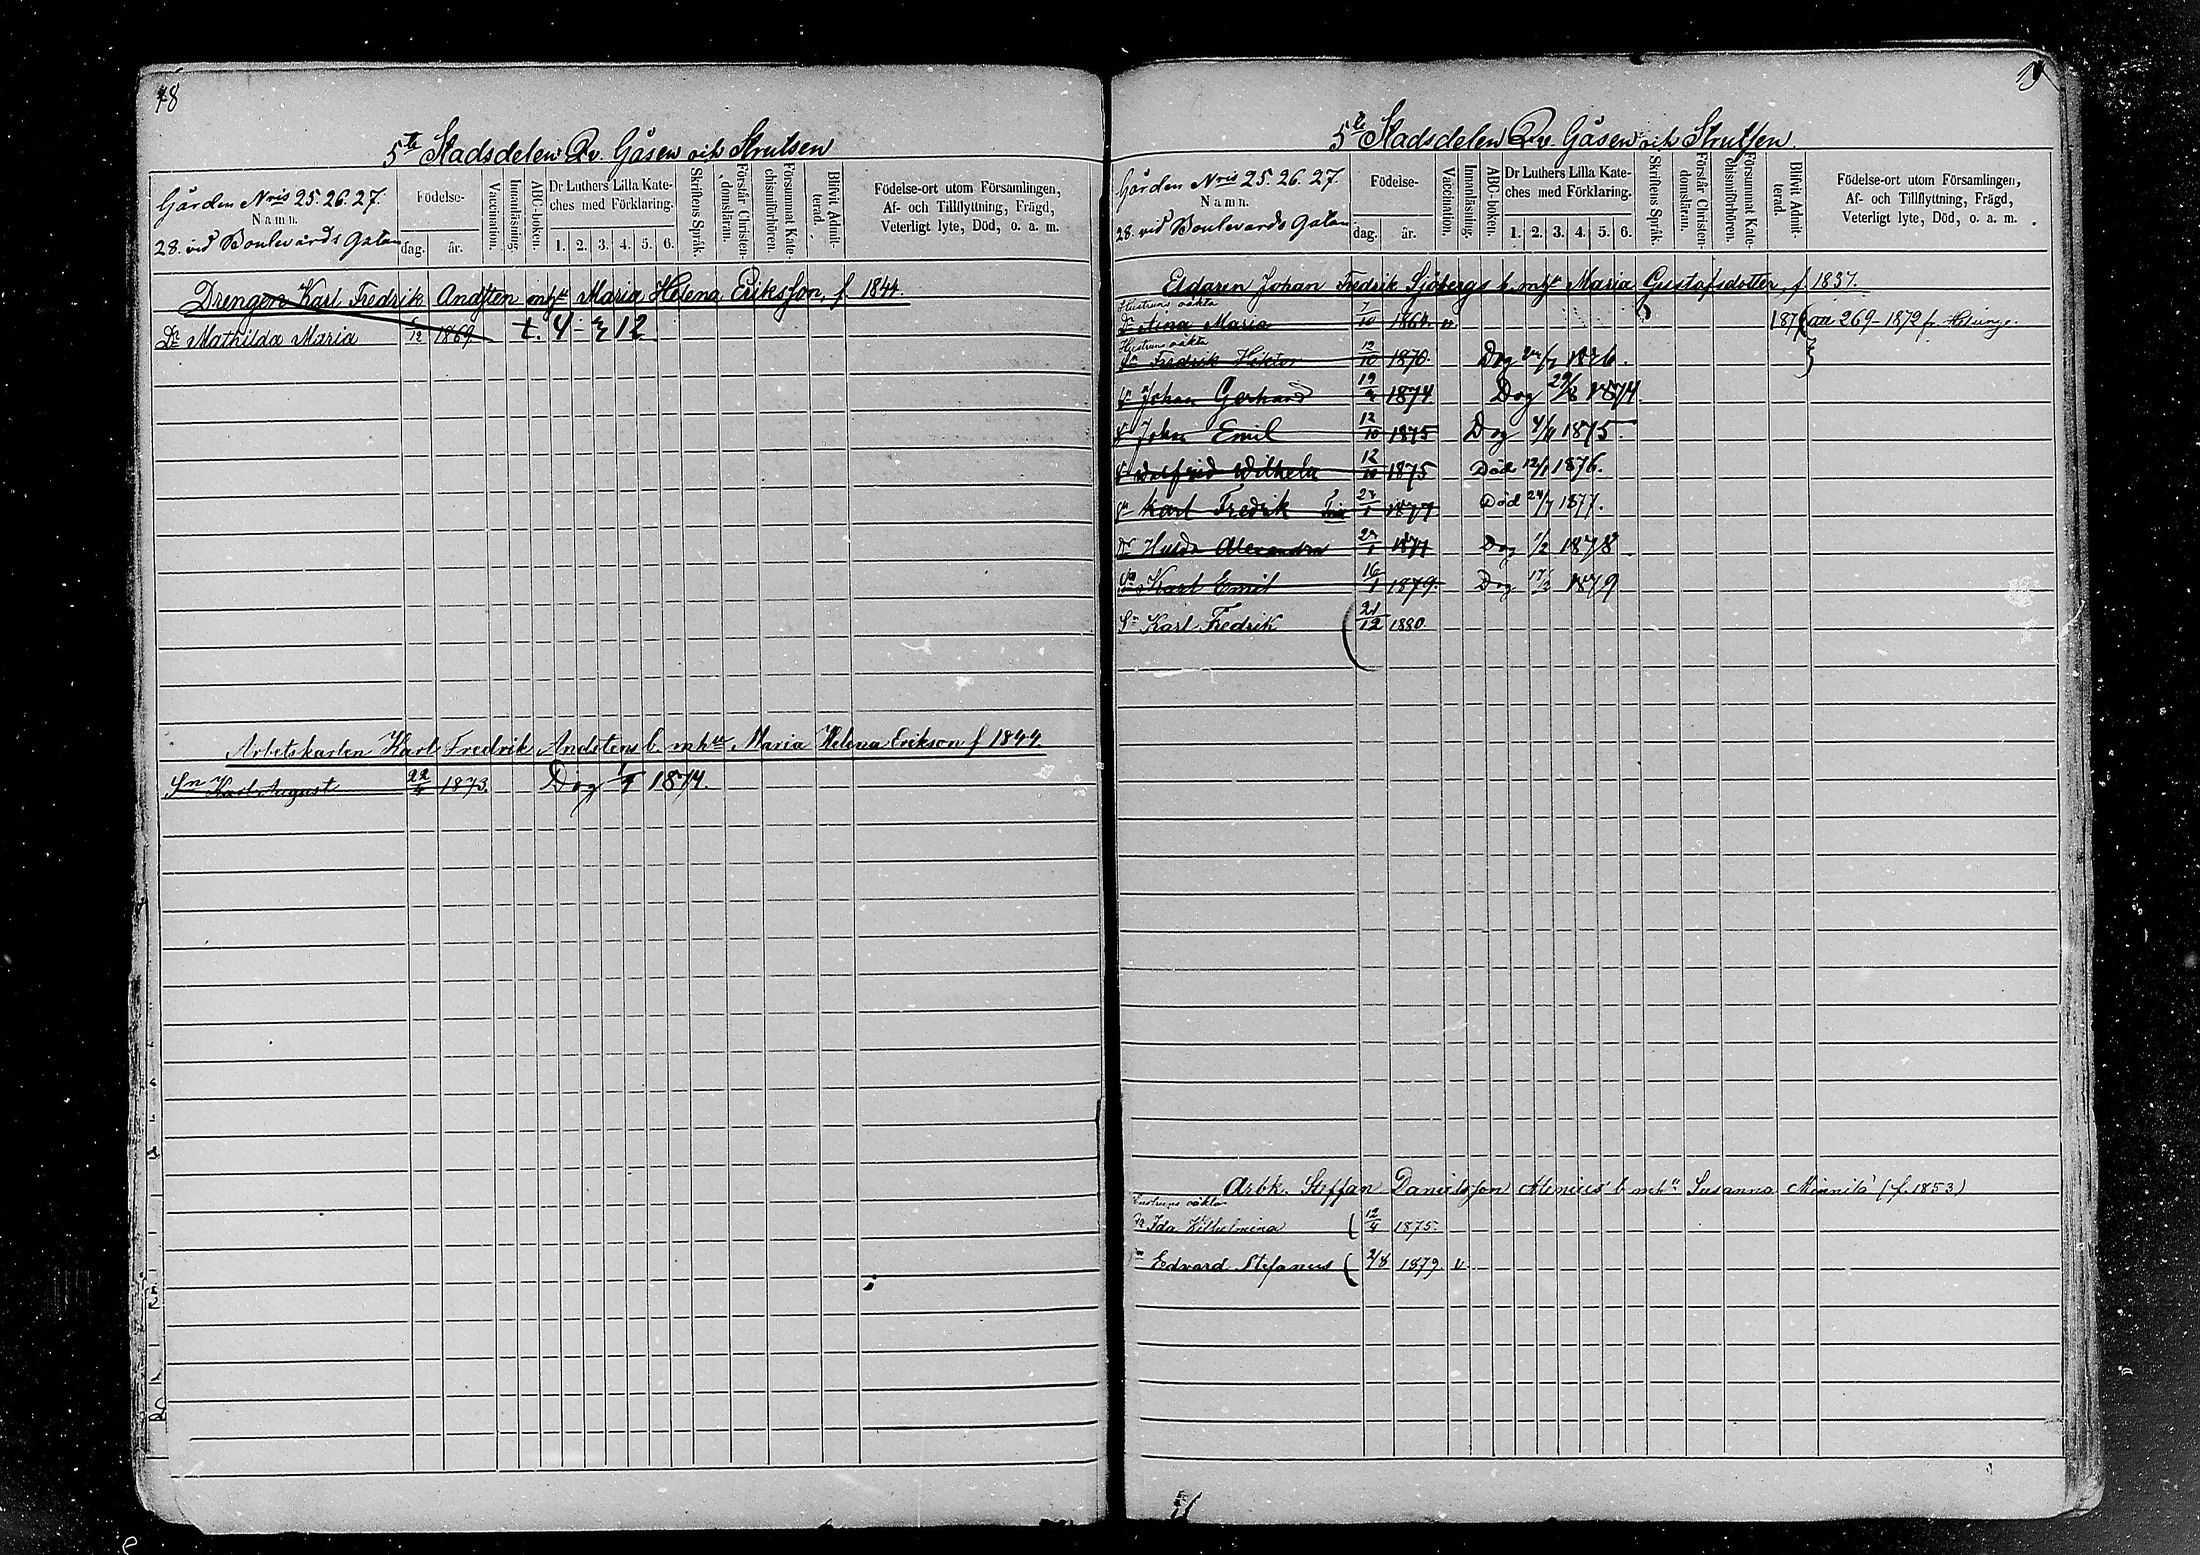 18
5te Stadsdelen Qv. Gåsen och Strutsen
Gården Nris 25. 26. 27.
Namn.
28. vid Boulevards Gatan
Födelse-
dag.
år.
Vaccination.
Innanläsning.
ABC-boken.
Dr Luthers Lilla Kate-
ches med Förklaring.
1. 2. 3. 4. 5. 6.
Skriftens Språk.
Förstår Christen-
domsläran.
Försummat Kate-
chismiförhören.
Blifvit Admit-
terad.
Födelse-ort utom Församlingen,
Af- och Tillflyttning, Frägd,
Veterligt lyte, Död, o. a. m.
Drengen Karl Fredrik Andsten mhu Maria Helena Eriksson, f. 1844.
Dr Mathilda Maria /12 1869. t. 4 12
Arbetskarlen Karl Fredrik Andstens b. mhu Maria Helena Erikson f 1844.
Sn Karl August 22/ 1873. Dog 1874.
5te Stadsdelen Qv. Gåsen och Strutsen.
Gården Nris 25. 26. 27.
Namn.
28. vid Boulevards Gatan
Födelse-
dag.
år.
Vaccination.
Innanläsning.
ABC-boken.
Dr Luthers Lilla Kate-
ches med Förklaring.
1. 2. 3. 4. 5. 6.
Skriftens Språk.
Förstår Christen-
domsläran.
Försummat Kate-
chismiförhören.
Blifvit Admit-
terad.
Födelse-ort utom Församlingen,
Af- och Tillflyttning, Frägd,
Veterligt lyte, Död, o. a. m.
Eldaren Johan Fredrik Sjöbergs b. mhu Maria Gustafsdotter, f. 1837.
Hustruns oäkta
dr Maria 7/10 1864 v 269 - 1872 fr. Helsinge.
Hustruns oäkta
Sn Fredrik Viktor 12/10 1870. Dog
Sn Johan Gerhard 19/ 1874 Dog 29/8 1874.
Sn John Emil 12/10 1875 Dog 4/11 1875.
Sn Wilhelm 12/10 1875 Död 12/1 1876.
Sn Karl Fredrik 27/1 1877 Död 24/7 1877.
Dr Hulda Alexandra 27/1 1877 Dog 1/2 1878.
Sn Karl Emil 16/1 1879. Dog 17/2 1879
Sn Karl Fredrik 21/12 1880.
Arbk. Steffan Danielsson b. mhu Susanna Minnilä (f. 1853)
Hustruns oäkta
Dr Ida Wilhelmina 12/4 1875.
Sn Edvard Stefanus 2/8 1879 v